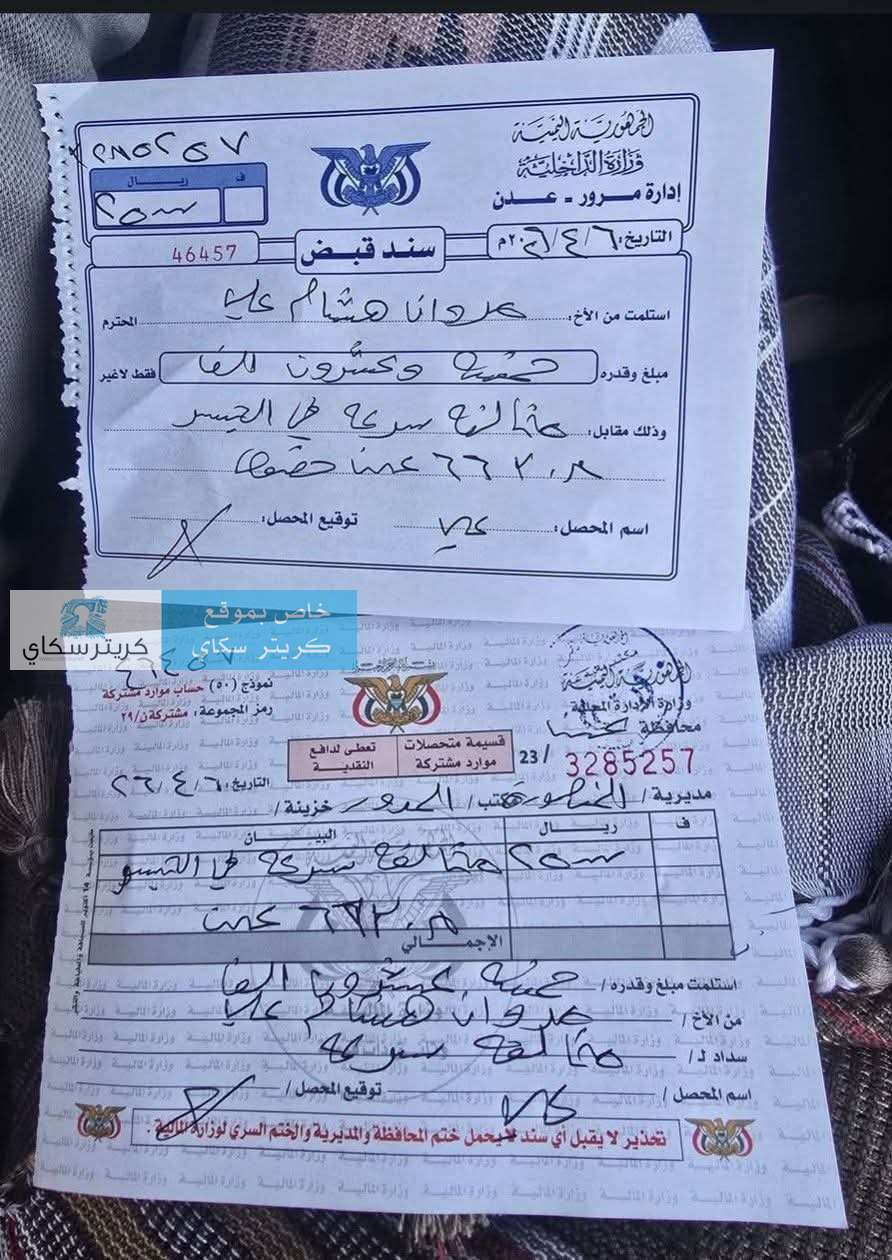 الجمهورية اليمنية
وزارة الداخلية
إدارة مرور - عدن
٣٢٨٥٢٥٧
ف ريال
التاريخ: ٦/٤/٢٠٢٦م
سند قبض
46457
استلمت من الأخ: مروان هشام علي المحترم
مبلغ وقدره خمسة وعشرون الفا فقط لاغير
وذلك مقابل: مخالفة سرعة في الجسر
اسم المحصل: علي توقيع المحصل:
خاص بموقع
كريتر سكاي
كريترسكاي
الجمهورية اليمنية
وزارة الإدارة المحلية
محافظة
٤٦٤٥٧
نموذج (٥٠) حساب موارد مشتركة
رمز المجموعة: مشتركةن/٢٩
قسيمة متحصلات موارد مشتركة
تعطى لدافع النقدية
23/ 3285257
التاريخ: ٦/٤/٢٦
مديرية / المنصورة مكتب / المرور خزينة /
ف ريال البيـــان
مخالفة سرعة في الجسر
الإجمـــالي
استلمت مبلغ وقدره / خمسة عشرون الفا
من الأخ / مروان هشام علي
سداد لـ / مخالفة سرعة
اسم المحصل / علي توقيع المحصل /
تحذير لا يقبل أي سند لا يحمل ختم المحافظة والمديرية والختم السري لوزارة المالية.